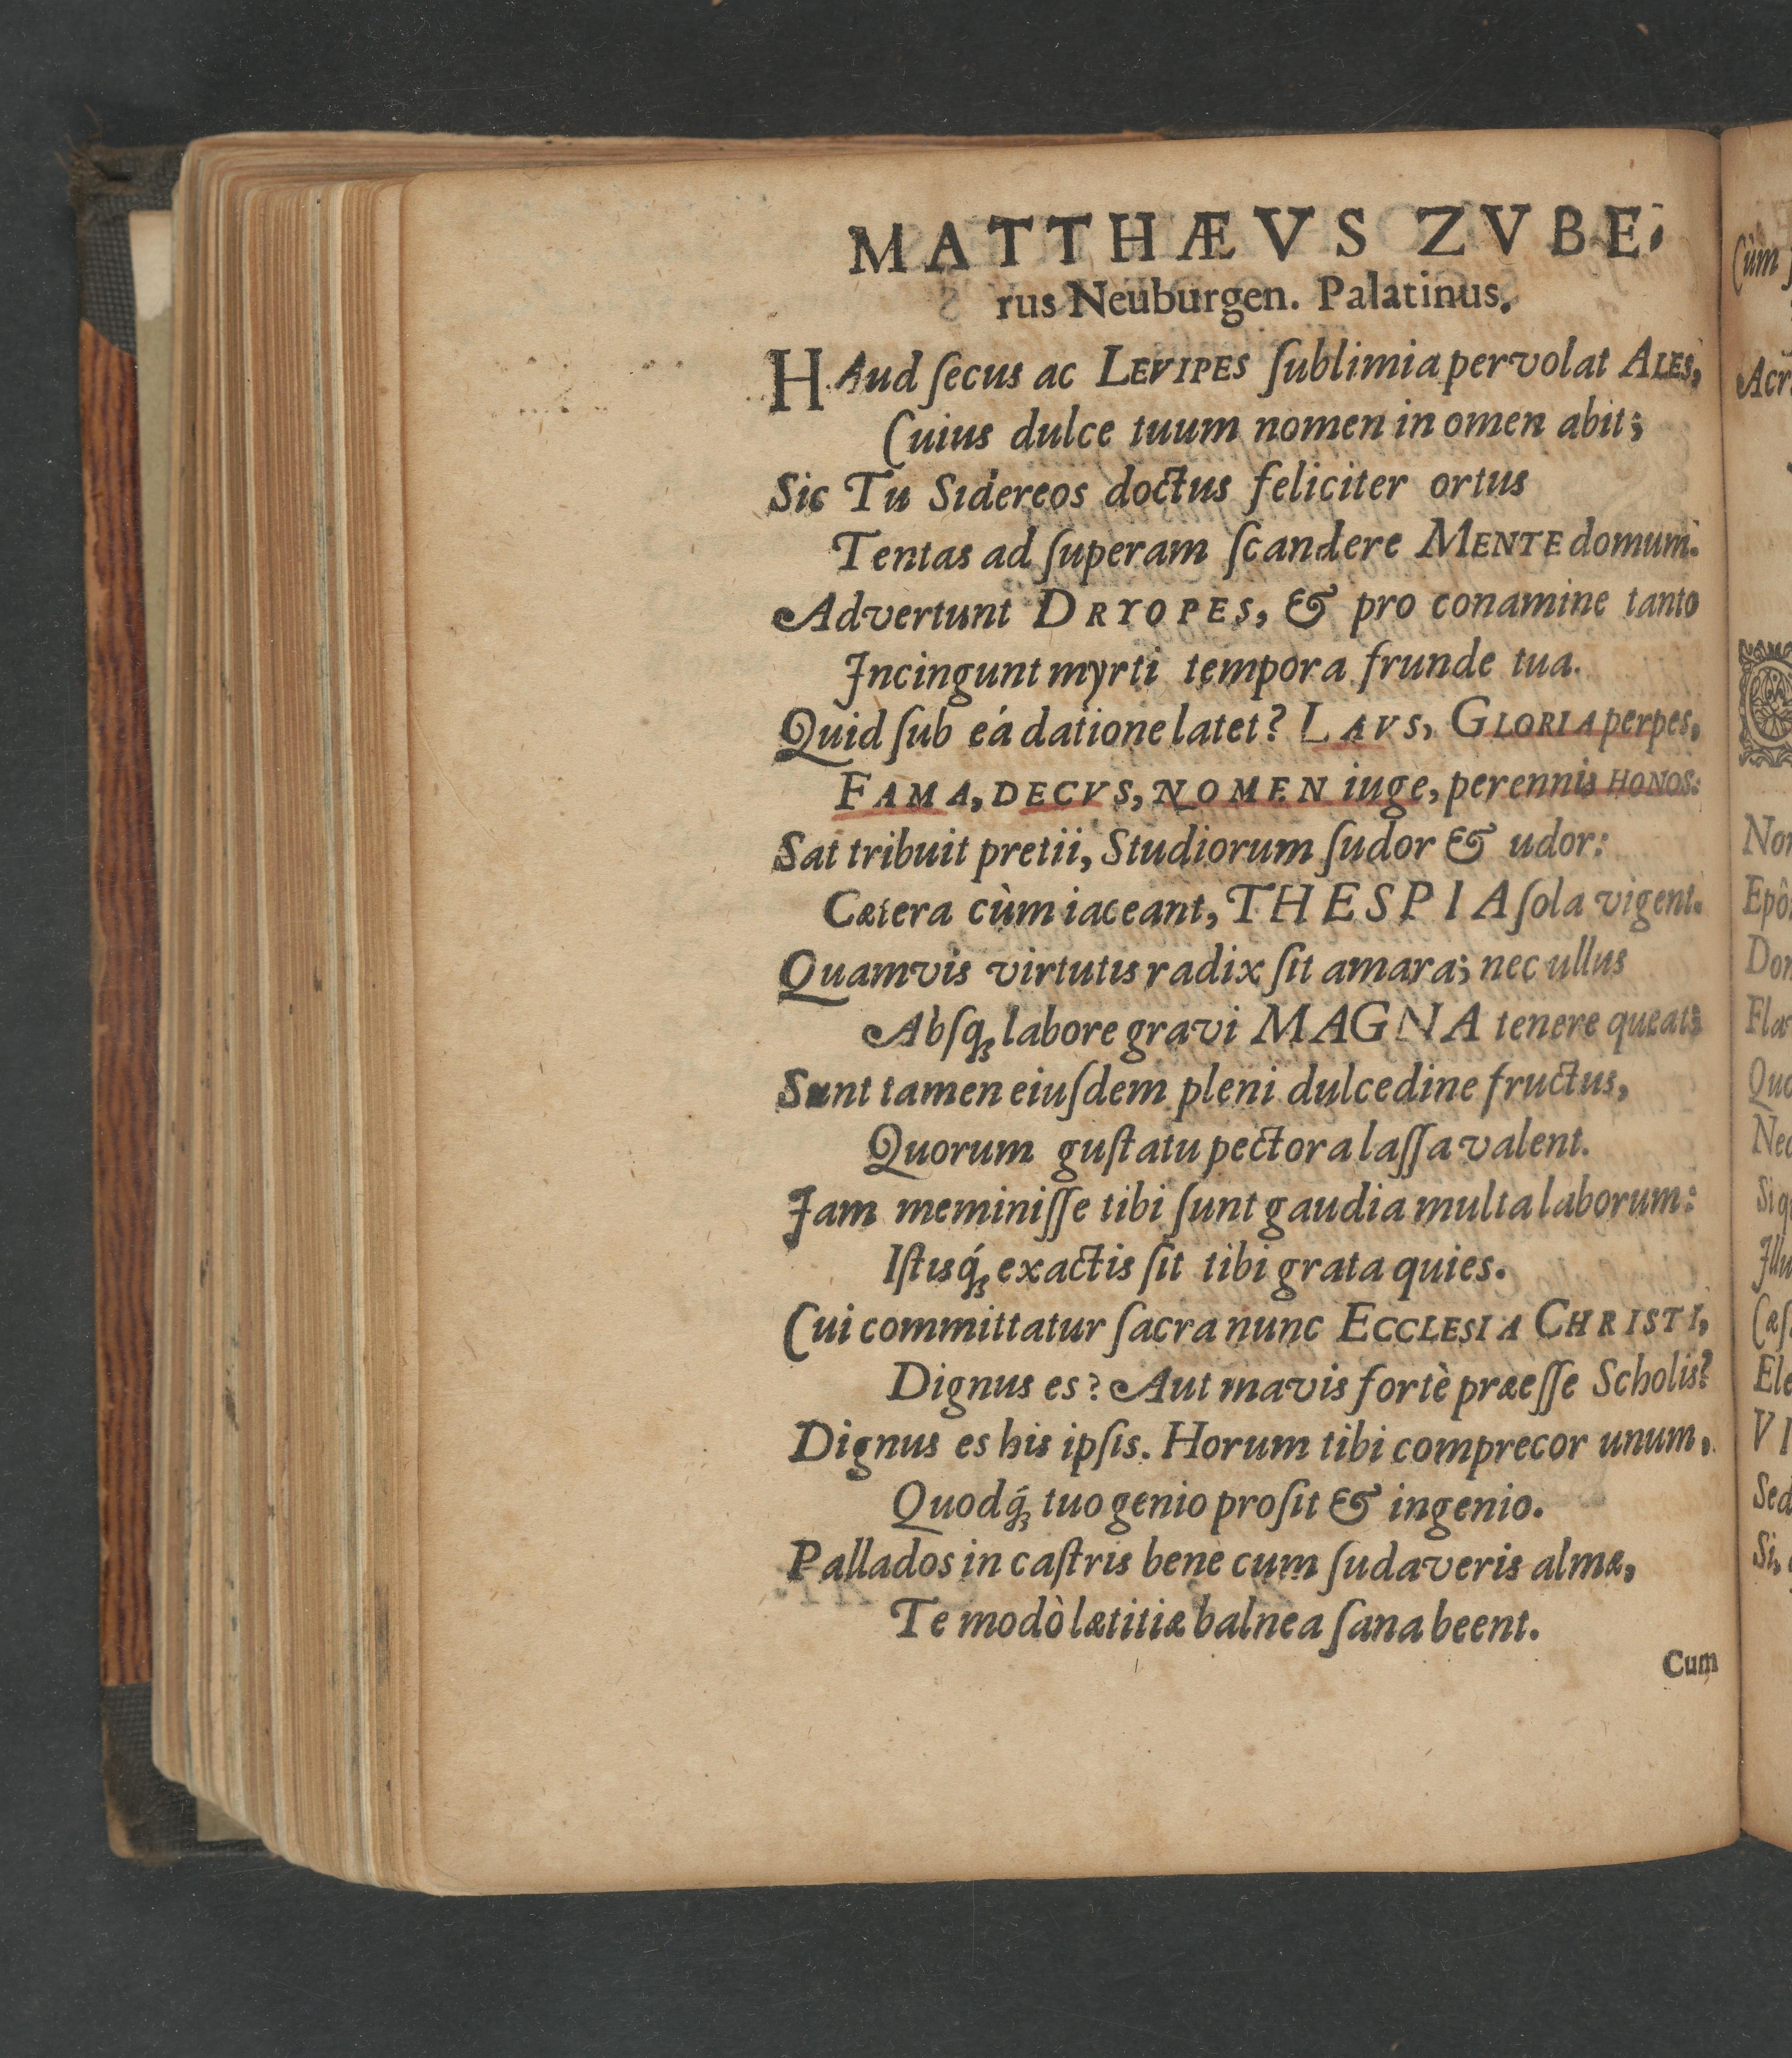 MATTHÆVS ZVBE-
rus Neuburgen. Palatinus.
HAud ſecus ac LEVIPES ſublimia pervolat ALES,
Cuius dulce tuum nomen in omen abit;
Sic Tu Sidereos doctus feliciter ortus
Tentas ad ſuperam ſcandere MENTE domum.
Advertunt DRYOPES, & pro conamine tanto
Incingunt myrti tempora frunde tua.
Quid ſub eá datione latet? LAVS, GLORIA perpes,
FAMA, DECVS, NOMEN iuge, perennis HONOS:
Sat tribuit pretii, Studiorum ſudor & udor:
Cætera cùm iaceant, THESPIA ſola vigent.
Quamvis virtutis radix ſit amara; nec ullus
Abſq́ꝫ labore gravi MAGNA tenere queat;
Sunt tamen eiuſdem pleni dulcedine fructus,
Quorum guſtatu pectora laſſa valent.
Jam meminiſſe tibi ſunt gaudia multa laborum:
Iſtisq́ꝫ exactis ſit tibi grata quies.
Cui committatur ſacra nunc ECCLESIA CHRISTI,
Dignus es? Aut mavis fortè præeſſe Scholis?
Dignus es his ipſis. Horum tibi comprecor unum,
Quodq́ꝫ tuo genio proſit & ingenio.
Pallados in caſtris bene cum ſudaveris almæ,
Te modò lætitiæ balnea ſana beent.
Cum
Cùm
Acr
Non
Epô
Don
Fla
Quo
Nec
Siq
Illu
Cæſ
Ele
VI
Sed
Si,